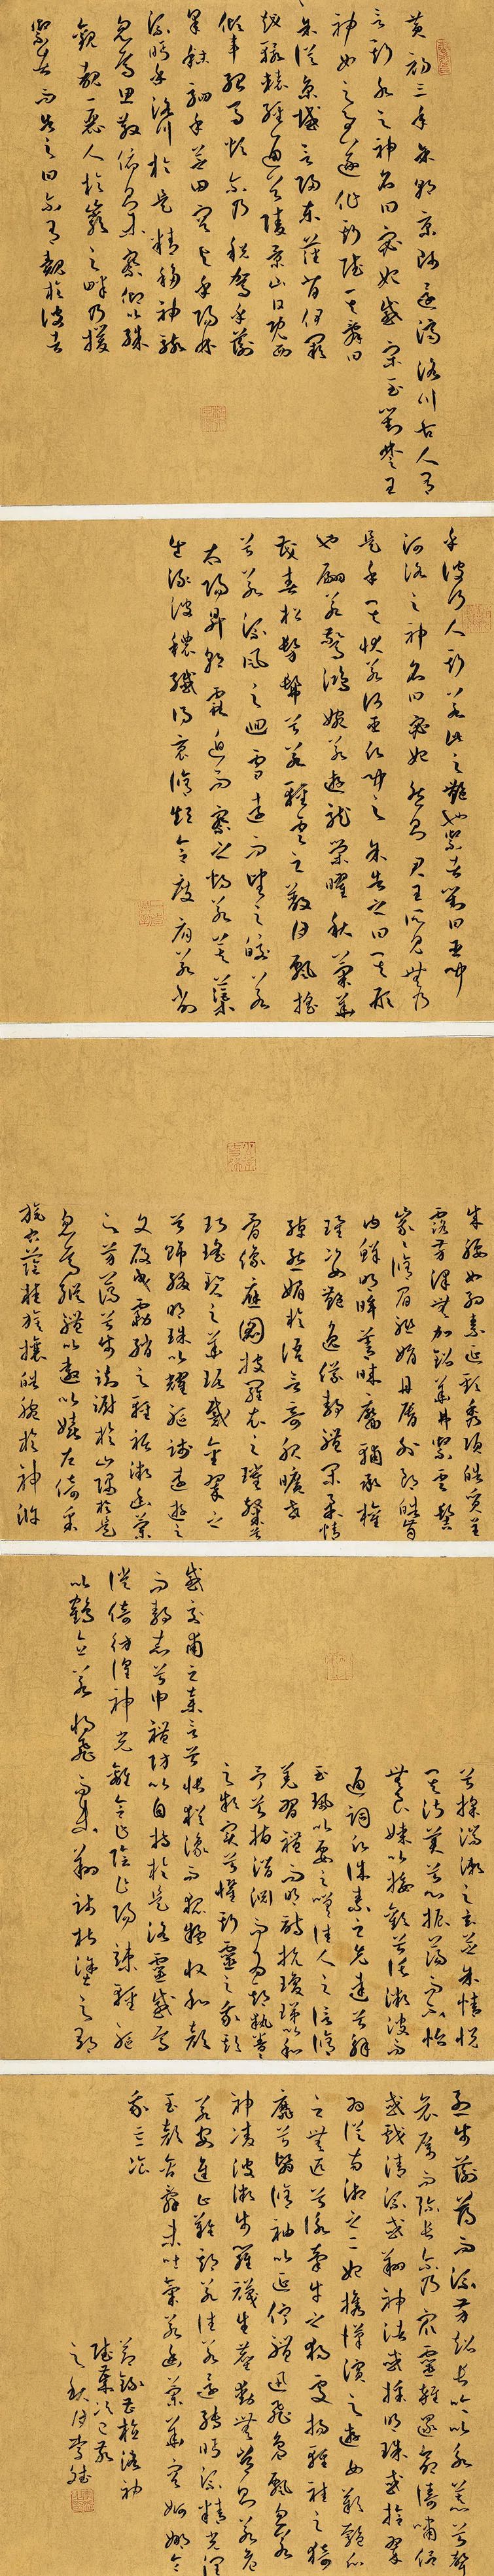 黃初三年余朝京師還濟洛川古人有
言斯水之神名曰宓妃感宋玉對楚王
神女之事遂作斯賦其辭曰
余從京域言歸東藩背伊闕
越轘轅經通谷陵景山日既西
傾車殆馬煩爾乃稅駕乎蘅
皋秣駟乎芝田容與乎陽林
流眄乎洛川於是精移神駭
忽焉思散俯則未察仰以殊
觀覩一麗人於巖之畔乃援
御者而告之曰爾有覿於彼者
乎彼何人斯若此之艷也御者對曰臣聞
河洛之神名曰宓妃然則君王所見無乃
是乎其狀若何臣願聞之余告之曰其形
也翩若驚鴻婉若遊龍榮曜秋菊華
茂春松髣髴兮若輕雲之蔽月飄飖
兮若流風之迴雪遠而望之皎若
太陽昇朝霞迫而察之灼若芙蕖
出淥波穠纖得衷脩短合度肩若削
成腰如約素延頸秀項皓質呈
露芳澤無加鉛華弗御雲髻
峨峨脩眉聯娟丹脣外朗皓齒
內鮮明眸善睞靨輔承權
瓌姿艷逸儀靜體閑柔情
綽態媚於語言奇服曠世
骨像應圖披羅衣之璀粲兮
珥瑤碧之華琚戴金翠之
首飾綴明珠以耀軀踐遠遊之
文履曳霧綃之輕裾微幽蘭
之芳藹兮步踟躕於山隅於是
忽焉縱體以遨以嬉左倚采
旄右蔭桂旗攘皓腕於神滸
兮採湍瀨之玄芝余情悅
其淑美兮心振蕩而不怡
無良媒以接歡兮託微波而
通辭願誠素之先達兮解
玉珮以要之嗟佳人之信脩
羌習禮而明詩抗瓊珶以和
予兮指潛淵而為期執眷眷
之款實兮懼斯靈之我欺
感交甫之棄言兮悵猶豫而狐疑收和顏
而靜志兮申禮防以自持於是洛靈感焉
徙倚彷徨神光離合乍陰乍陽竦輕軀
以鶴立若將飛而未翔踐椒塗之郁
烈步蘅薄而流芳超長吟以永慕兮聲
哀厲而彌長爾乃眾靈雜遝命儔嘯侶
或戲清流或翔神渚或採明珠或拾翠
羽從南湘之二妃攜漢濱之遊女歎匏瓜
之無匹兮詠牽牛之獨處揚輕袿之猗
靡兮翳脩袖以延佇體迅飛鳧飄忽若
神凌波微步羅襪生塵動無常則若危
若安進止難期若往若還轉眄流精光潤
玉顏含辭未吐氣若幽蘭華容婀娜令
我忘飡
節錄曹植洛神
賦歲次己亥
之秋月李